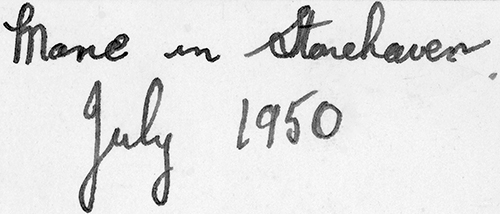 Marie in Stonehaven.
July 1950